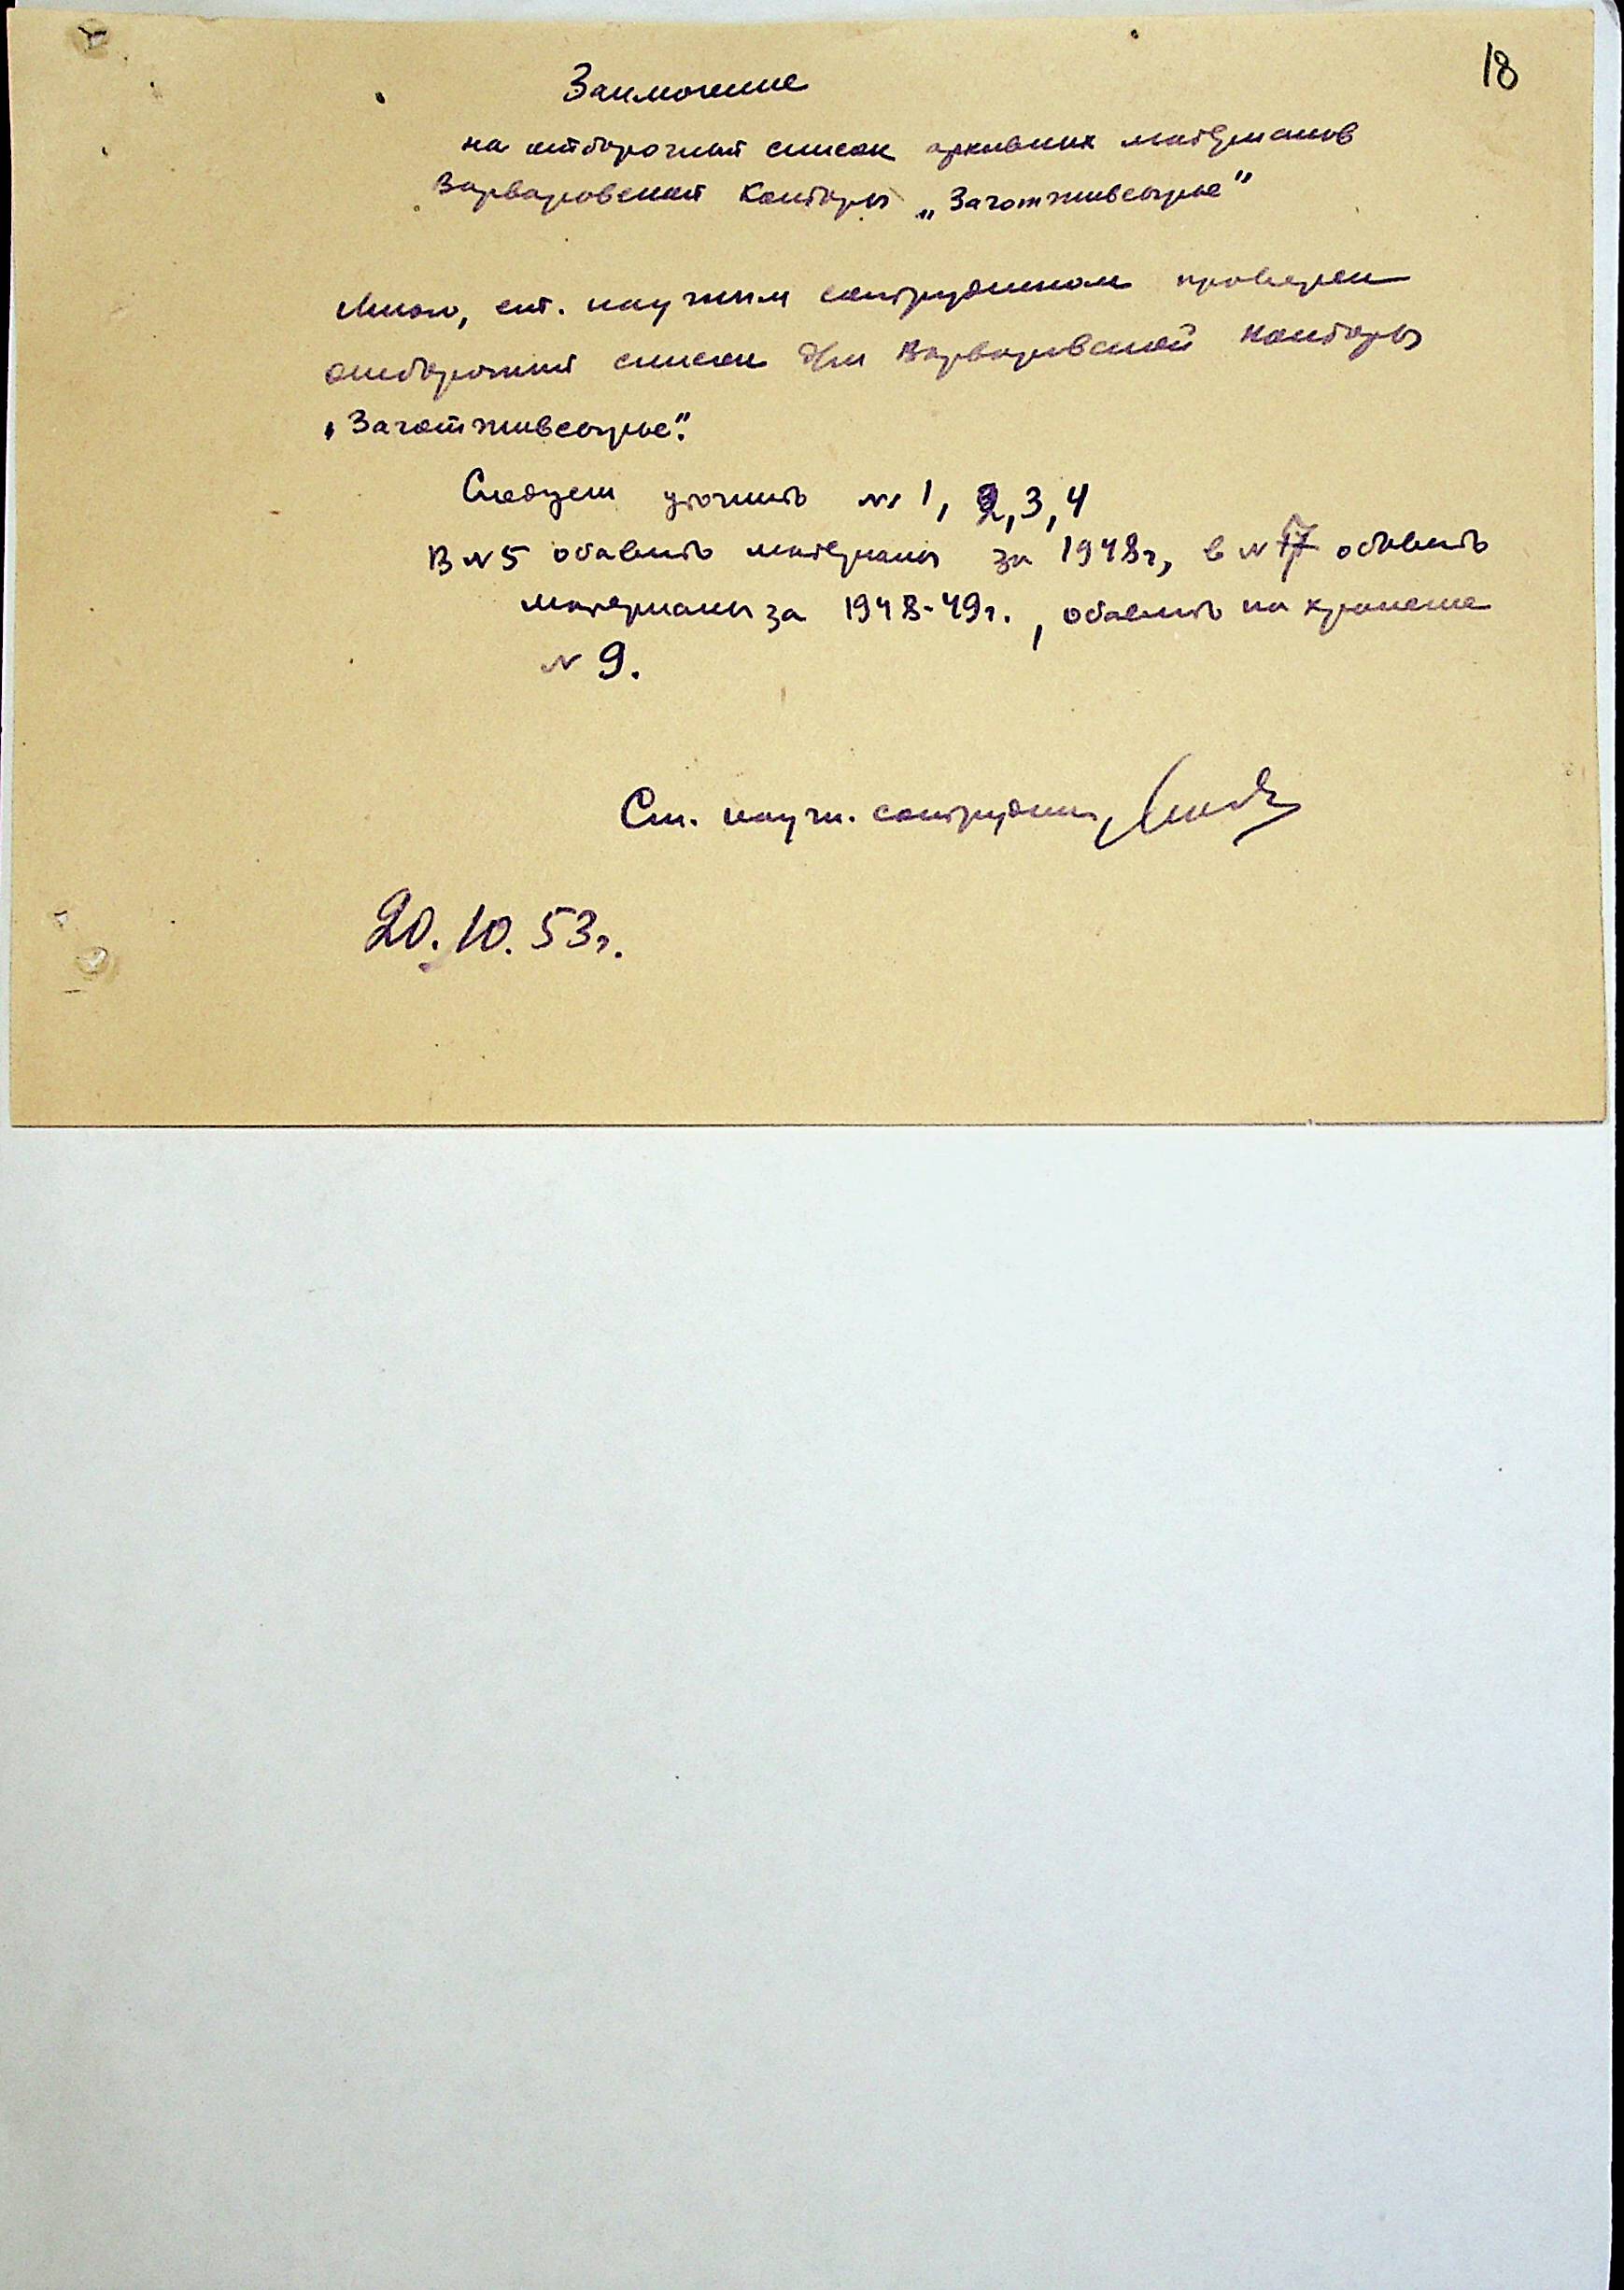 18
Заключение
на отборочный список архивных материалов
Варваровской конторы „Заготживсырье"
Мною, ст. научным сотрудником проверен
отборочный список для Варваровской конторы
„Заготживсырье".
Следует уточнить №№ 1, 2, 3, 4
В №5 оставить материалы за 1948г, в №17 оставить
материалы за 1948-49г., оставить на хранение
№ 9.
Ст. научн. сотрудник
20.10.53г.